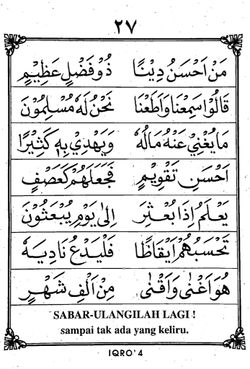 ٢٧
مَنْ اَحْسَنُ دِيْنًا ذُوْ فَضْلٍ عَظِيْمٍ
قَالُوْا سَمِعْنَا وَاَطَعْنَا نَحْنُ لَهُ مُسْلِمُوْنَ
مَا يُغْنِيْ عَنْهُ مَالُهُ وَيَهْدِيْ بِهِ كَثِيْرًا
اَحْسَنِ تَقْوِيْمٍ فَجَعَلَهُمْ كَعَصْفٍ
يَعْلَمُ اِذَا بُعْثِرَ اِلٰى يَوْمِ يُبْعَثُوْنَ
تَحْسَبُهُمْ اَيْقَاظًا فَلْيَدْعُ نَادِيَهُ
هُوَ اَغْنٰى وَاَقْنٰى مِنْ اَلْفِ شَهْرٍ
SABAR-ULANGILAH LAGI !
sampai tak ada yang keliru.
IQRO' 4